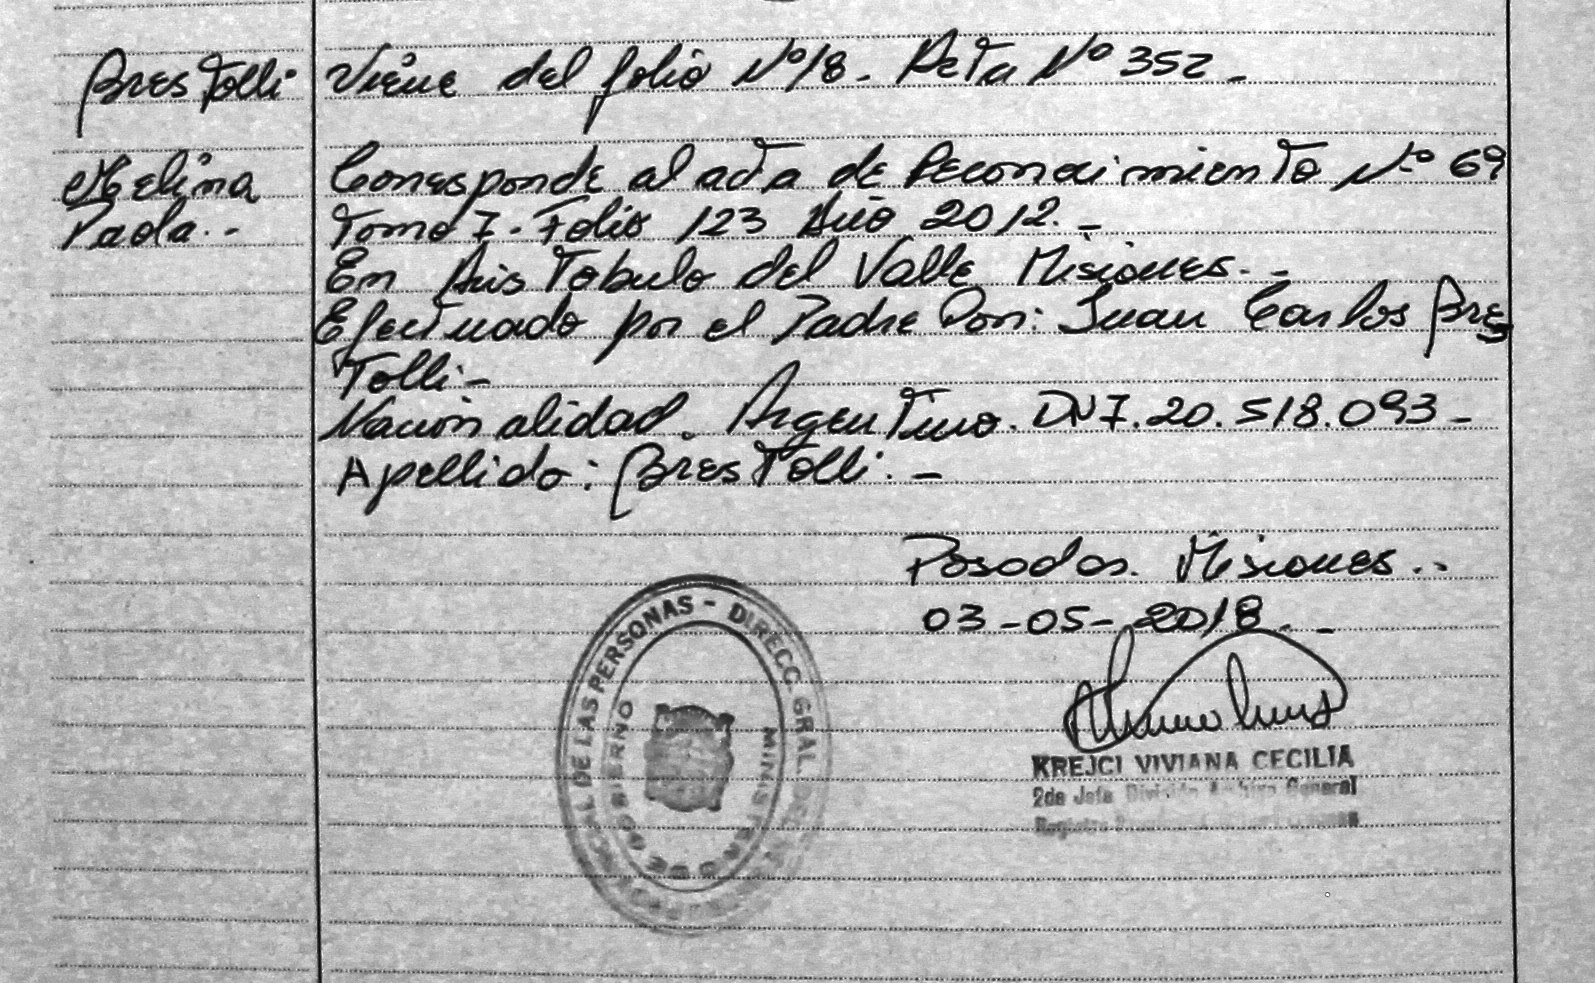 Brestolli
Melina
Paola.-
Viene del folio Nº 18. Acta Nº 352.-
Corresponde al acta de Reconocimiento Nº 69
Tomo I. Folio 123 Año 2012.-
En Aristobulo del Valle Misiones.-
Efectuado por el Padre Don: Juan Carlos Bres
Tolli-
Nacionalidad. Argentino. DNI. 20.518.093-
Apellido: Brestolli.-
Posadas. Misiones..
03-05-2018.-
KREJCI VIVIANA CECILIA
2da Jefa División Archivo General
Registro
DE LAS PERSONAS - DIRECC. GRAL.
MINIS
DE GOBIERNO